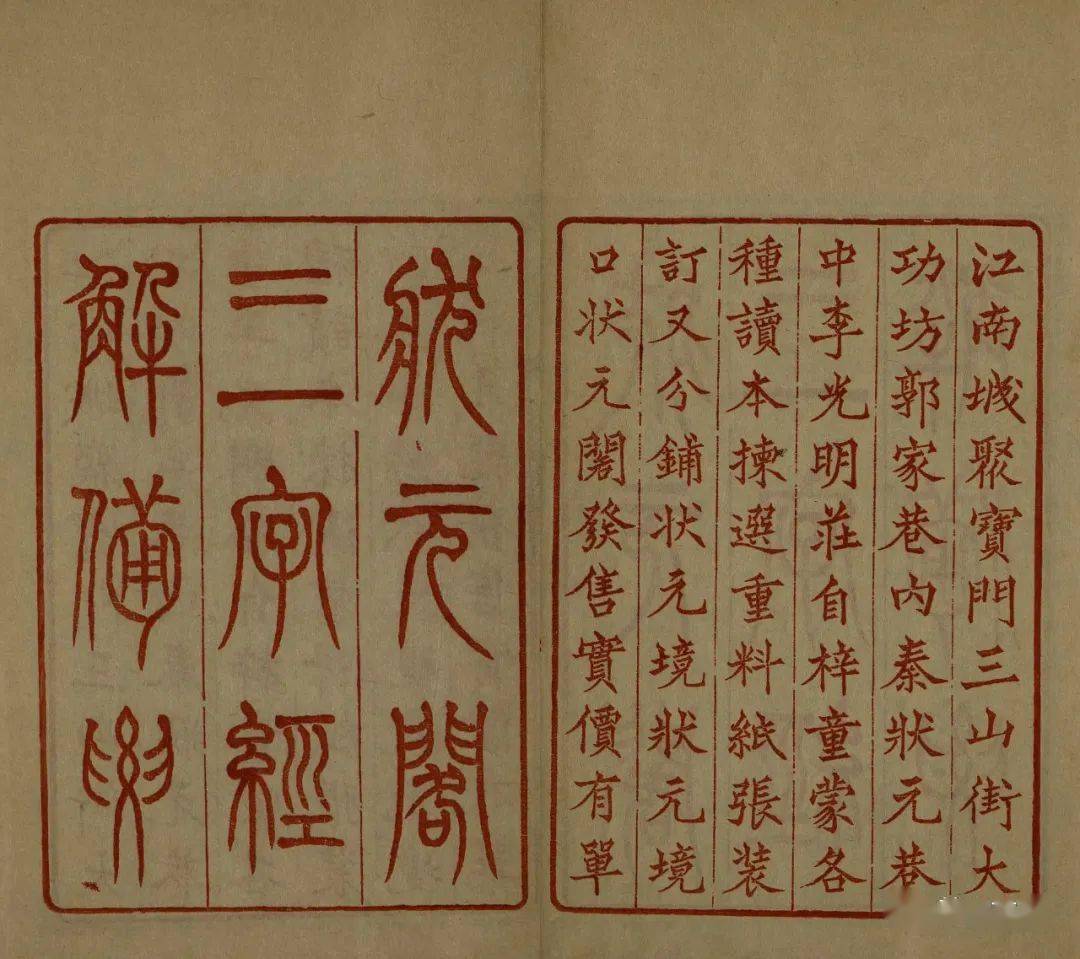 江南城聚寶門三山街大
功坊郭家巷內秦狀元巷
中李光明莊自梓童蒙各
種讀本揀選重料紙張装
訂又分鋪状元境狀元境
口状元閣發售實價有單
狀元閣
三字經
解備